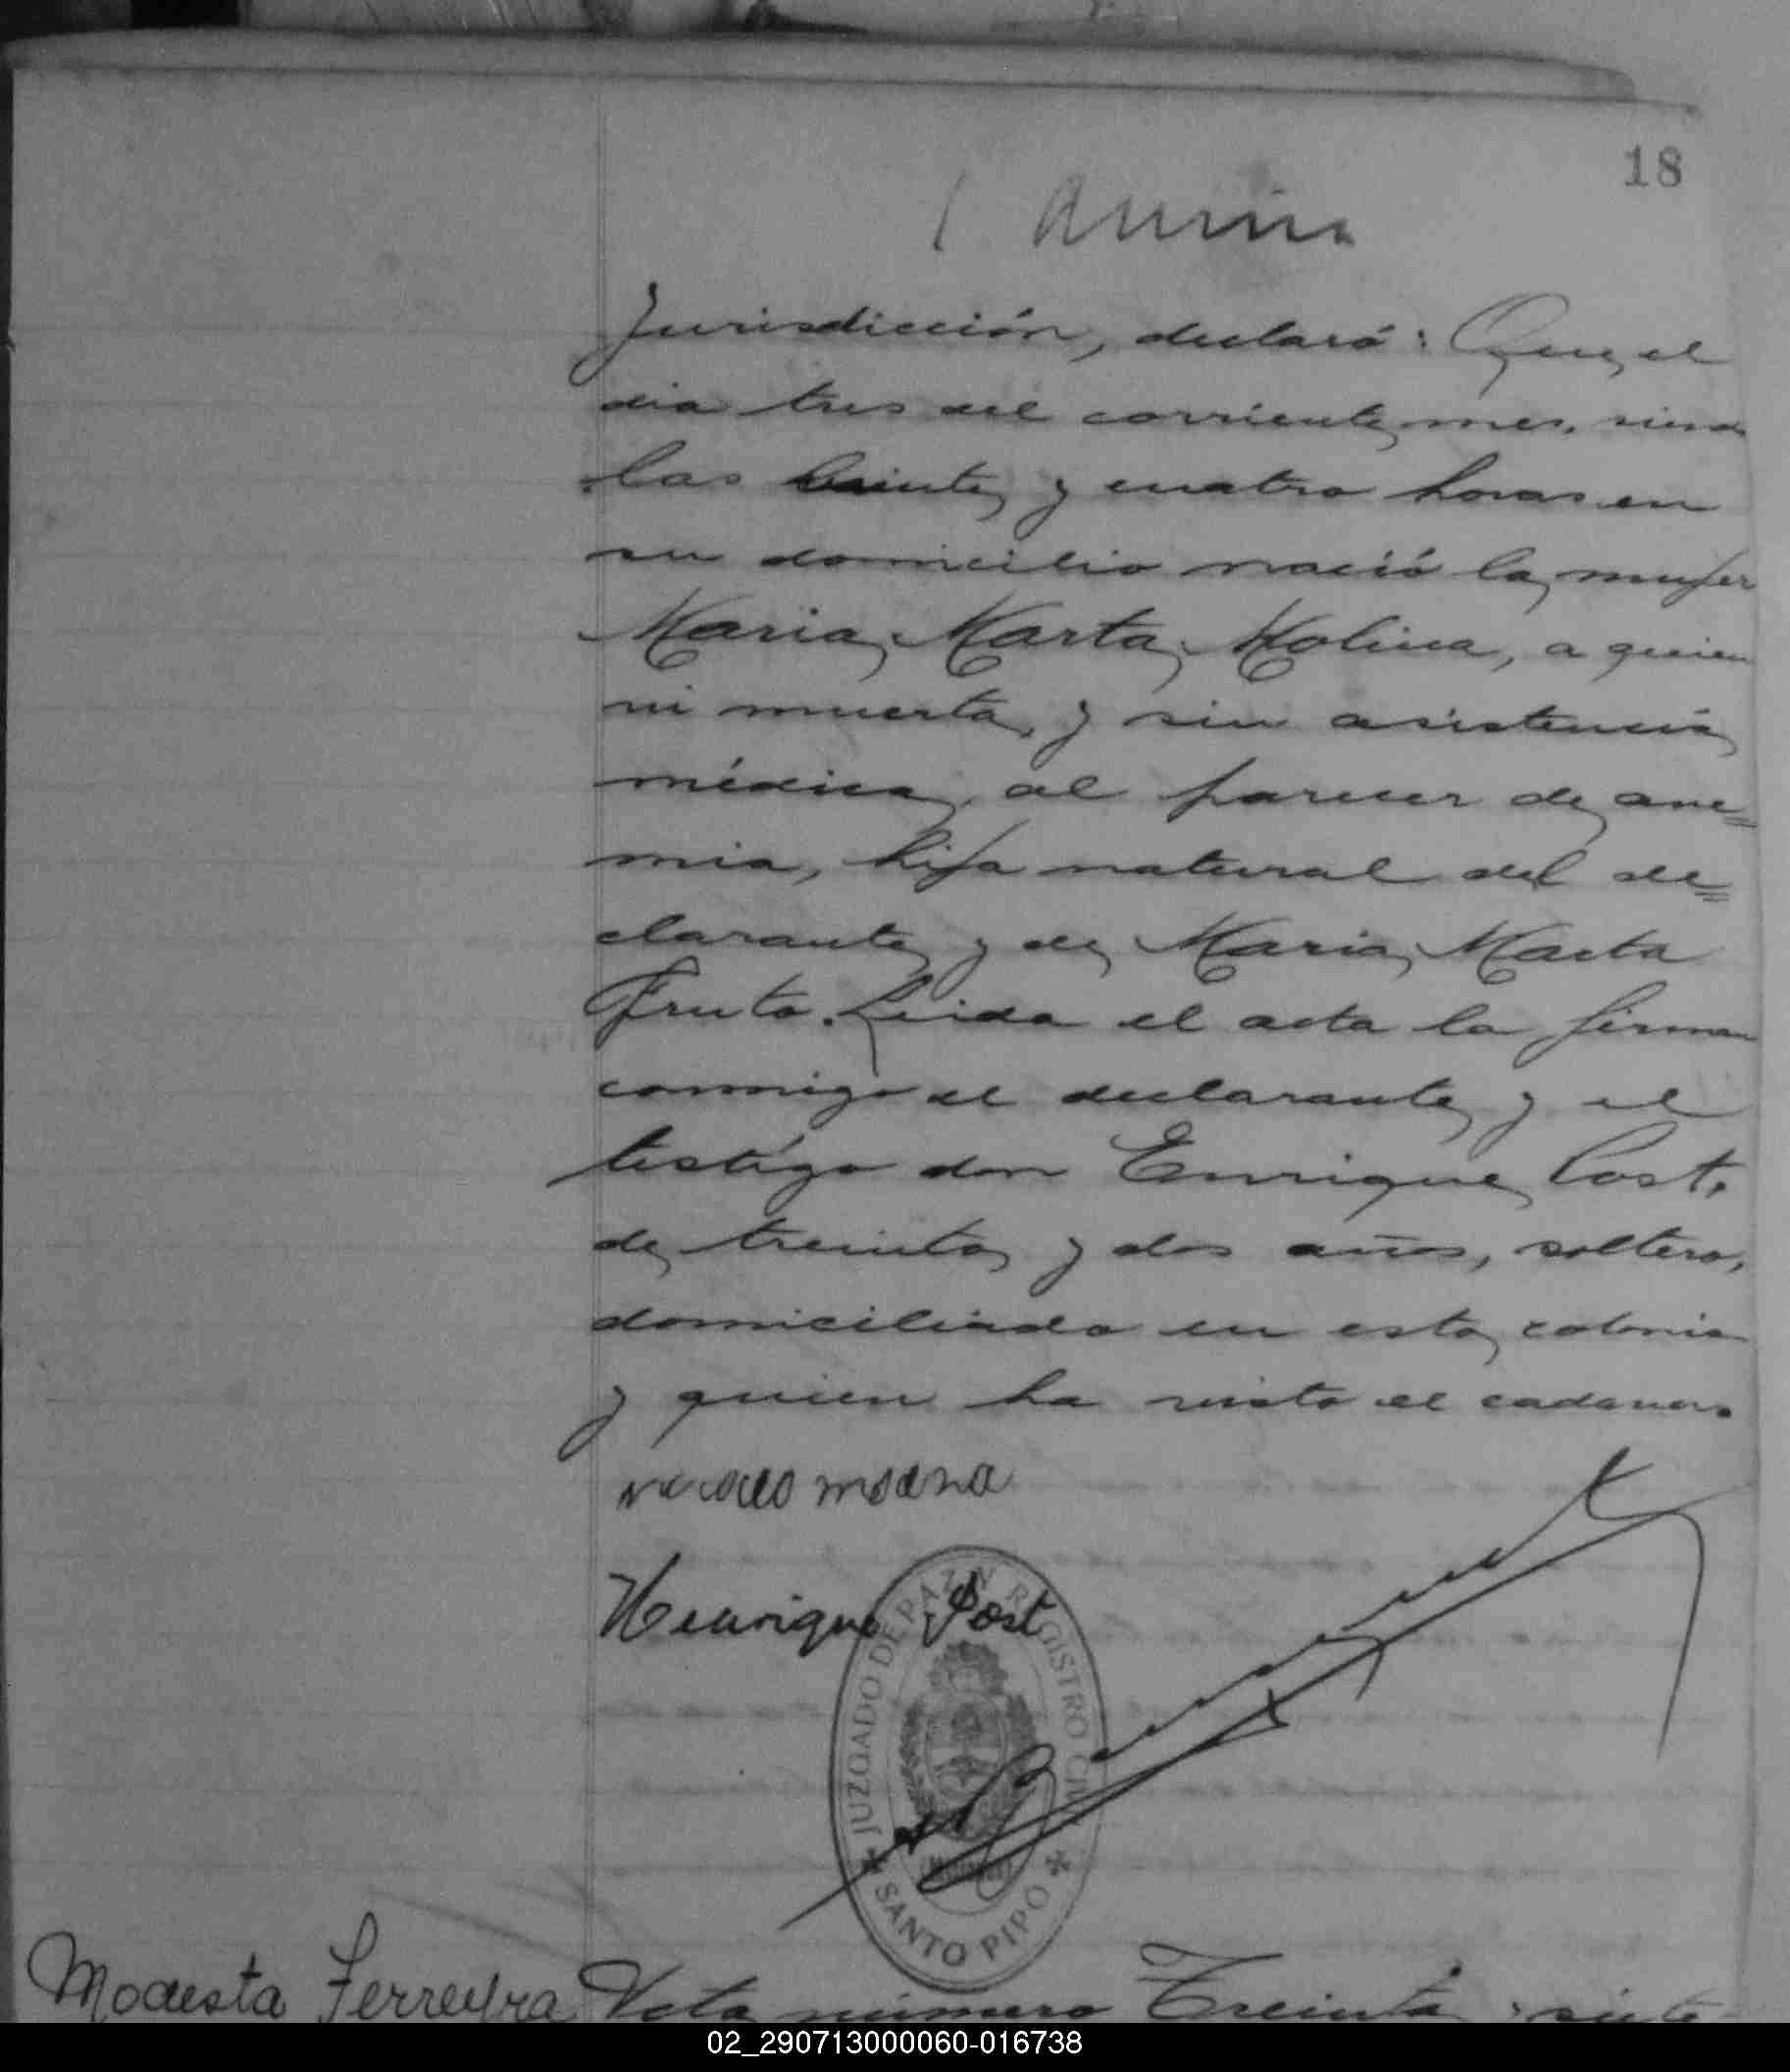 18
Jurisdicción, declaró: Que, el
dia tres del corriente mes, siendo
las veinte y cuatro horas en
su domicilio nació la mujer
Maria Marta Molina, a quien
vi muerta, y sin asistencia
médica, al parecer de ane=
mia, hija natural del de=
clarante y de Maria Marta
Fruto. Leida el acta la firman
conmigo el declarante y el
testigo don Enrique Post,
de treinta y dos años, soltero,
domiciliado en esta colonia
y quien ha visto el cadaver.
Henrique Post
JUZGADO DE PAZ Y REGISTRO CIVIL
SANTO PIPO
Modesta Ferreyra
Acta número Treinta y siete
02_290713000060-016738